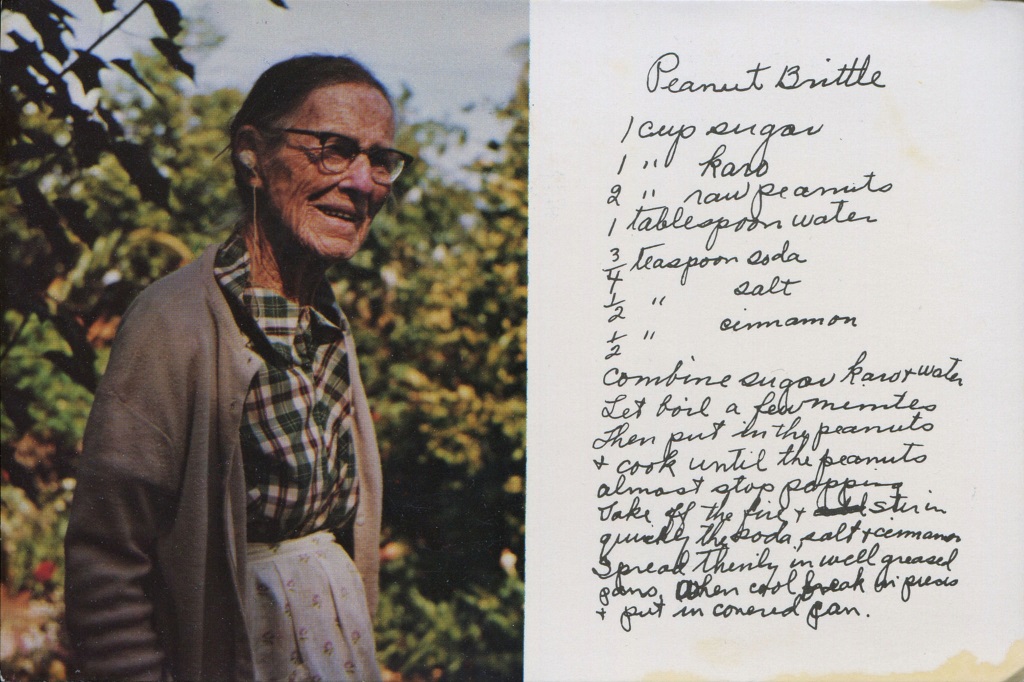 Peanut Brittle
1 cup sugar
1 " karo
2 " raw peanuts
1 tablespoon water
3/4 teaspoon soda
1/2 " salt
1/2 " cinnamon
Combine sugar karo + water
Let boil a few minutes
Then put in the peanuts
+ cook until the peanuts
almost stop popping
Take off the fire + stir in
quickly the soda, salt + cinnamon
Spread thinly in well greased
pans, When cool break in pieces
+ put in covered can.